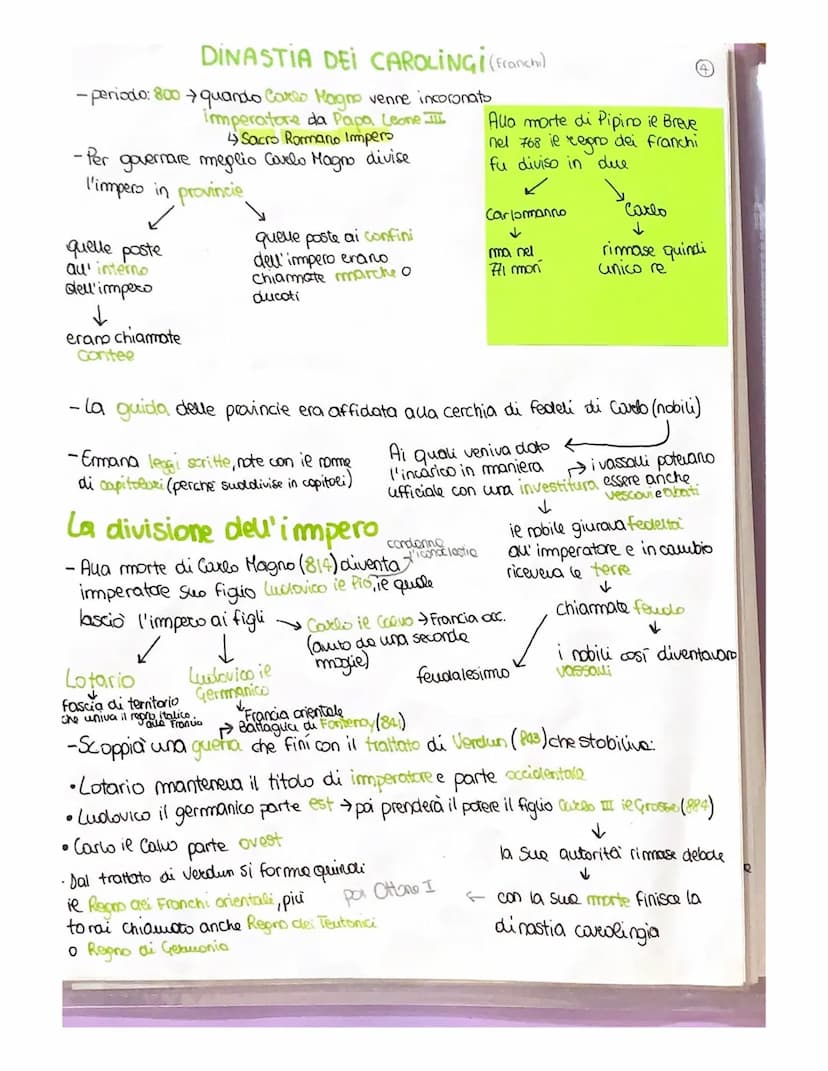 DINASTIA DEI CAROLINGI (Franchi)
4
- periodo: 800 → quando Carlo Magno venne incoronato
imperatore da Papa Leone III
↳ Sacro Romano Impero
- Per governare meglio Carlo Magno divise
l'impero in provincie
quelle poste
all'interno
dell'impero
↓
erano chiamate
contee
quelle poste ai confini
dell'impero erano
chiamate marche o
ducati
Alla morte di Pipino il Breve
nel 768 il regno dei Franchi
fu diviso in due
Carlomanno
↓
ma nel
771 morì
Carlo
↓
rimase quindi
unico re
- La guida delle provincie era affidata alla cerchia di fedeli di Carlo (nobili)
- Emana leggi scritte, note con il nome
di capitolari (perché suddivise in capitoli)
Ai quali veniva dato
l'incarico in maniera
ufficiale con una investitura
→ i vassalli potevano
essere anche
vescovi e abati
↓
il nobile giurava fedeltà
all'imperatore e in cambio
riceveva le terre
↓
chiamate feudo
↓
i nobili così diventavano
vassalli
feudalesimo
La divisione dell'impero
- Alla morte di Carlo Magno (814) diventa
condanna
l'iconoclastia
imperatore suo figlio Ludovico il Pio, il quale
lasciò l'impero ai figli
→ Carlo il Calvo → Francia occ.
(avuto da una seconda
moglie)
Lotario
↓
fascia di territorio
che univa il regno italico
alla Francia
Ludovico il
Germanico
↳ Francia orientale
→ Battaglia di Fontenoy (841)
- Scoppiò una guerra che finì con il trattato di Verdun (843) che stabiliva:
• Lotario manteneva il titolo di imperatore e parte occidentale
• Ludovico il germanico parte est → poi prenderà il potere il figlio Carlo III il Grosso (884)
• Carlo il Calvo parte ovest
↓
la sua autorità rimase debole
↓
con la sua morte finisce la
dinastia carolingia
← poi Ottone I
· Dal trattato di Verdun si forma quindi
il Regno dei Franchi orientali, più
torai chiamato anche Regno dei Teutonici
o Regno di Germania